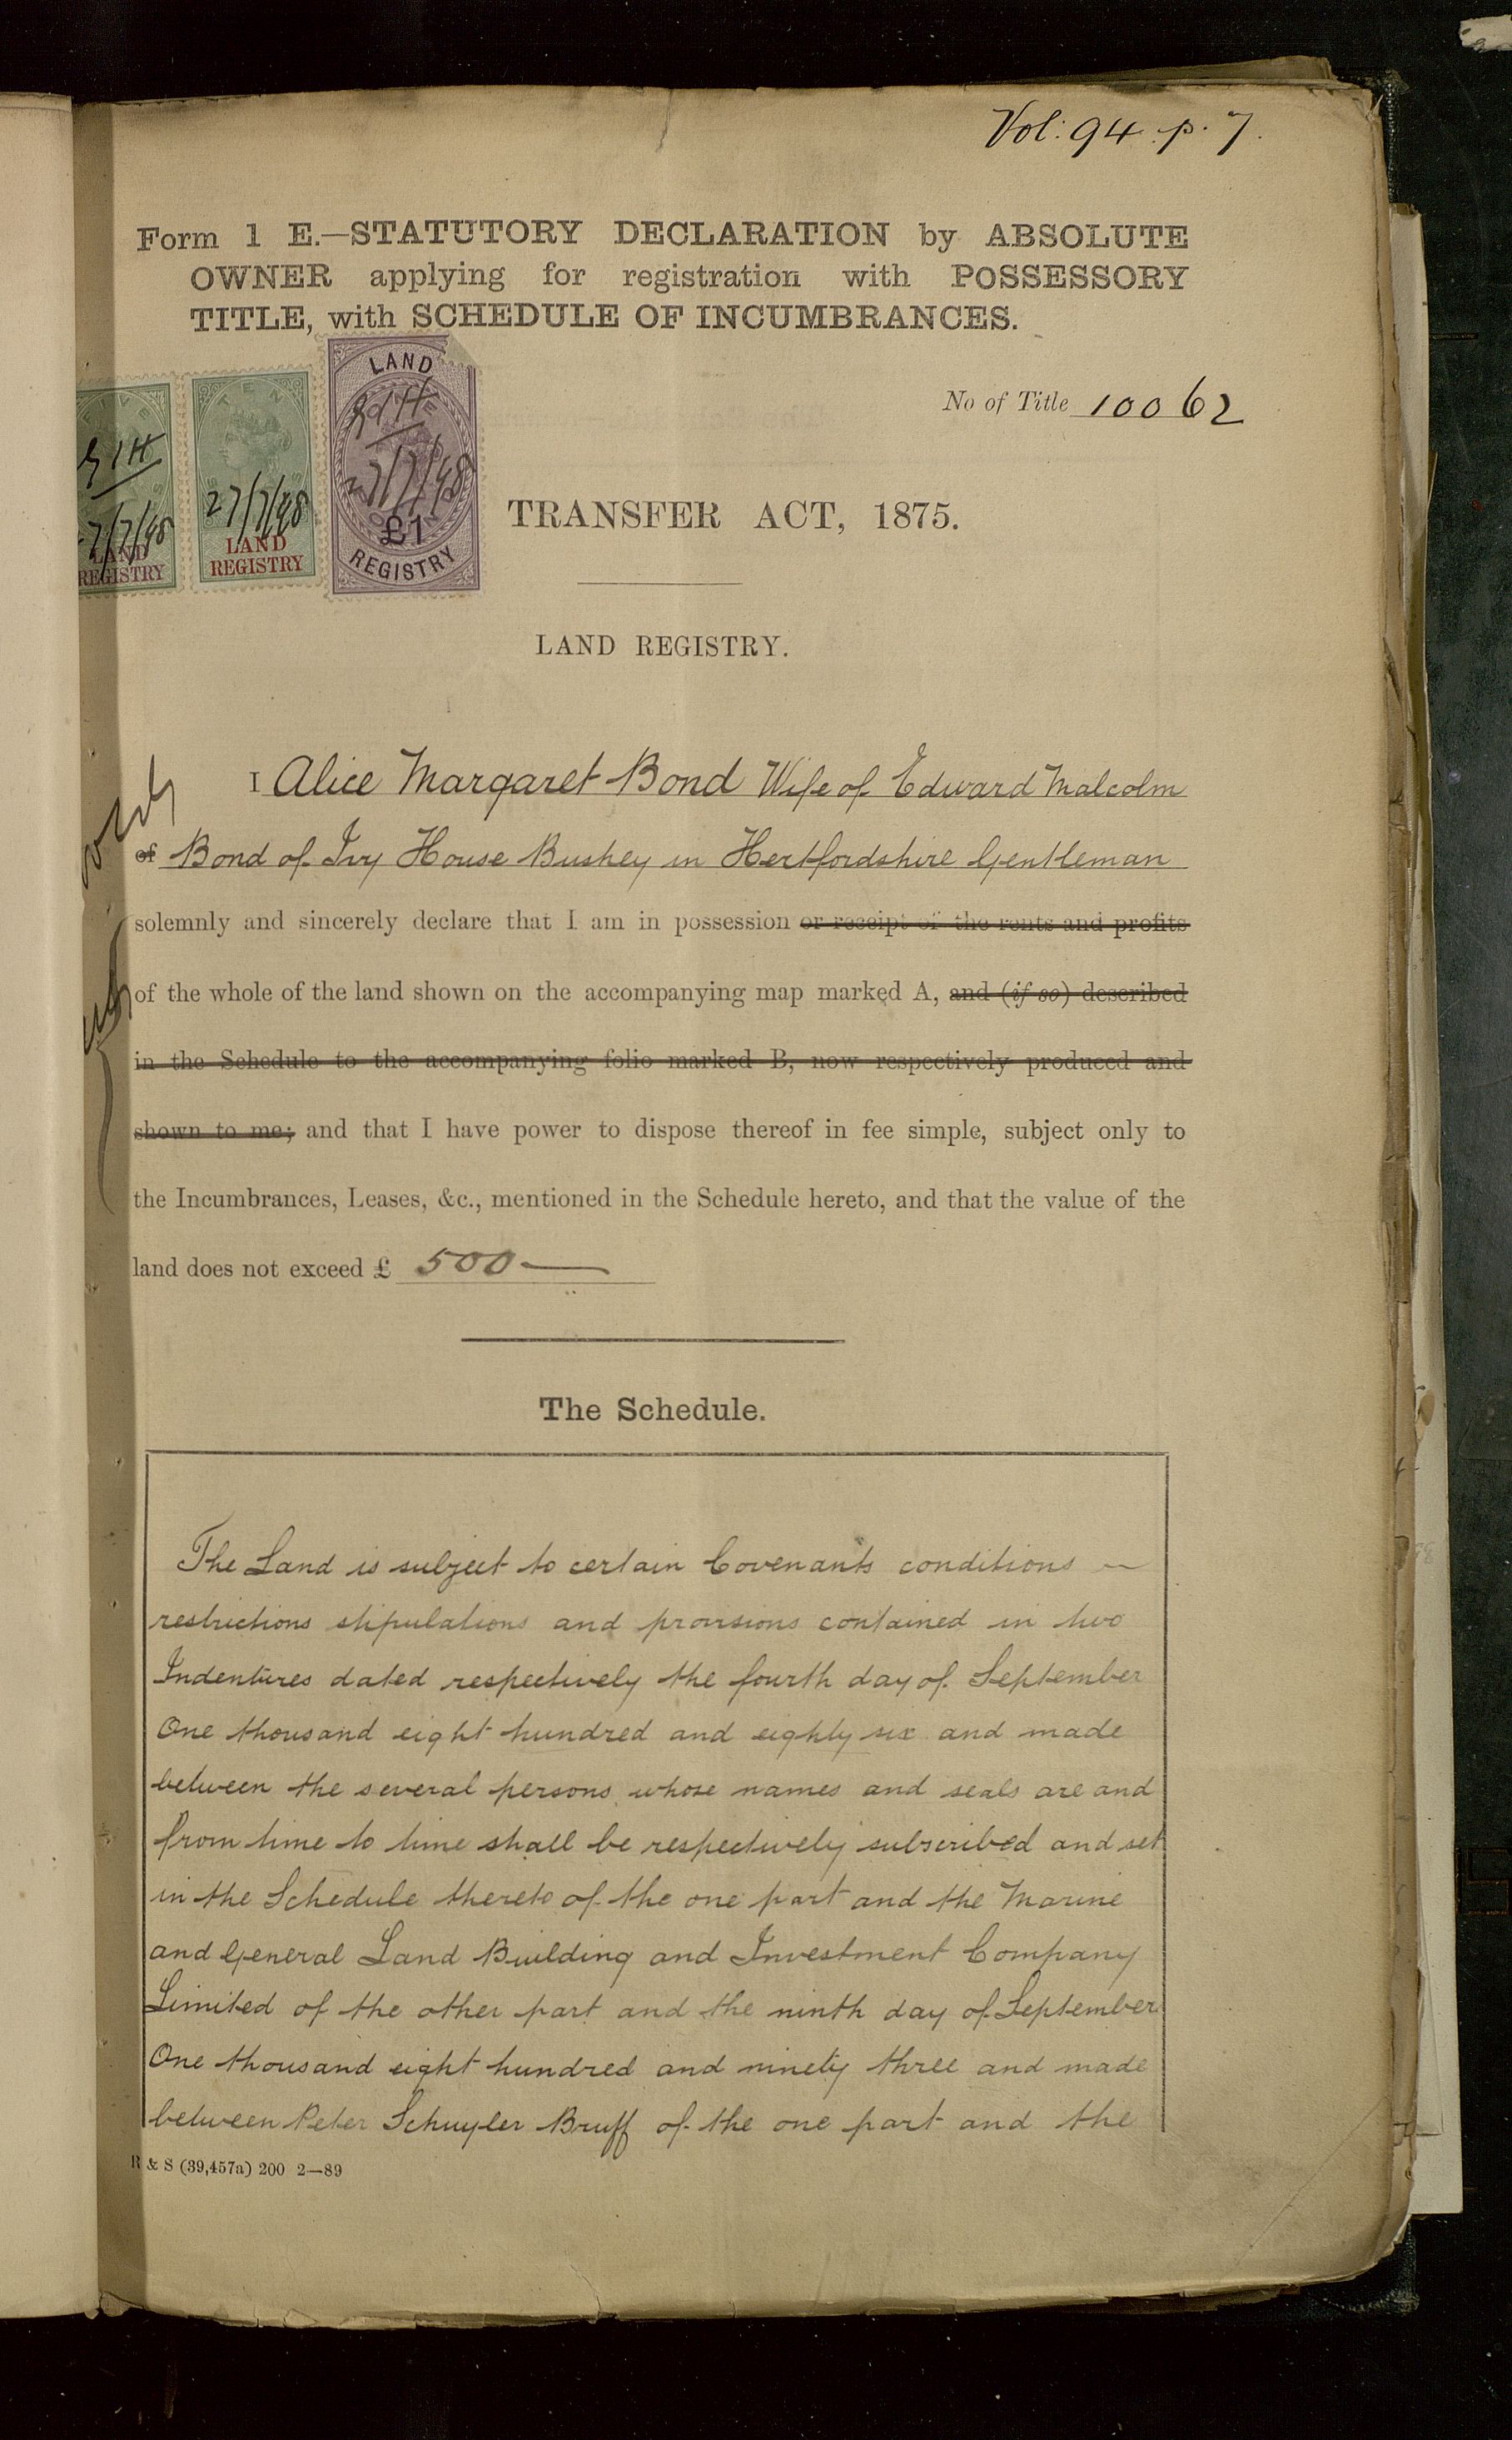 Vol: 94. p. 7.
Form 1 E.—STATUTORY DECLARATION by ABSOLUTE
OWNER applying for registration with POSSESSORY
TITLE, with SCHEDULE OF INCUMBRANCES.
No of Title 10062
FIVE
27/7/98
LAND
REGISTRY
TEN
27/7/98
LAND
REGISTRY
LAND
27/7/98
£1
REGISTRY
TRANSFER ACT, 1875.
LAND REGISTRY.
I Alice Margaret Bond Wife of Edward Malcolm
of Bond of Ivy House Bushey in Hertfordshire Gentleman
solemnly and sincerely declare that I am in possession or receipt of the rents and profits
of the whole of the land shown on the accompanying map marked A, and (if so) described
in the Schedule to the accompanying folio marked B, now respectively produced and
shown to me; and that I have power to dispose thereof in fee simple, subject only to
the Incumbrances, Leases, &c., mentioned in the Schedule hereto, and that the value of the
land does not exceed £ 500
The Schedule.
The Land is subject to certain Covenants conditions
restrictions stipulations and provisions contained in two
Indentures dated respectively the fourth day of September
One thousand eight hundred and eighty six and made
between the several persons whose names and seals are and
from time to time shall be respectively subscribed and set
in the Schedule thereto of the one part and the Marine
and General Land Building and Investment Company
Limited of the other part and the ninth day of September
One thousand eight hundred and ninety three and made
between Peter Schuyler Bruff of the one part and the
R & S (39,457a) 200 2—89